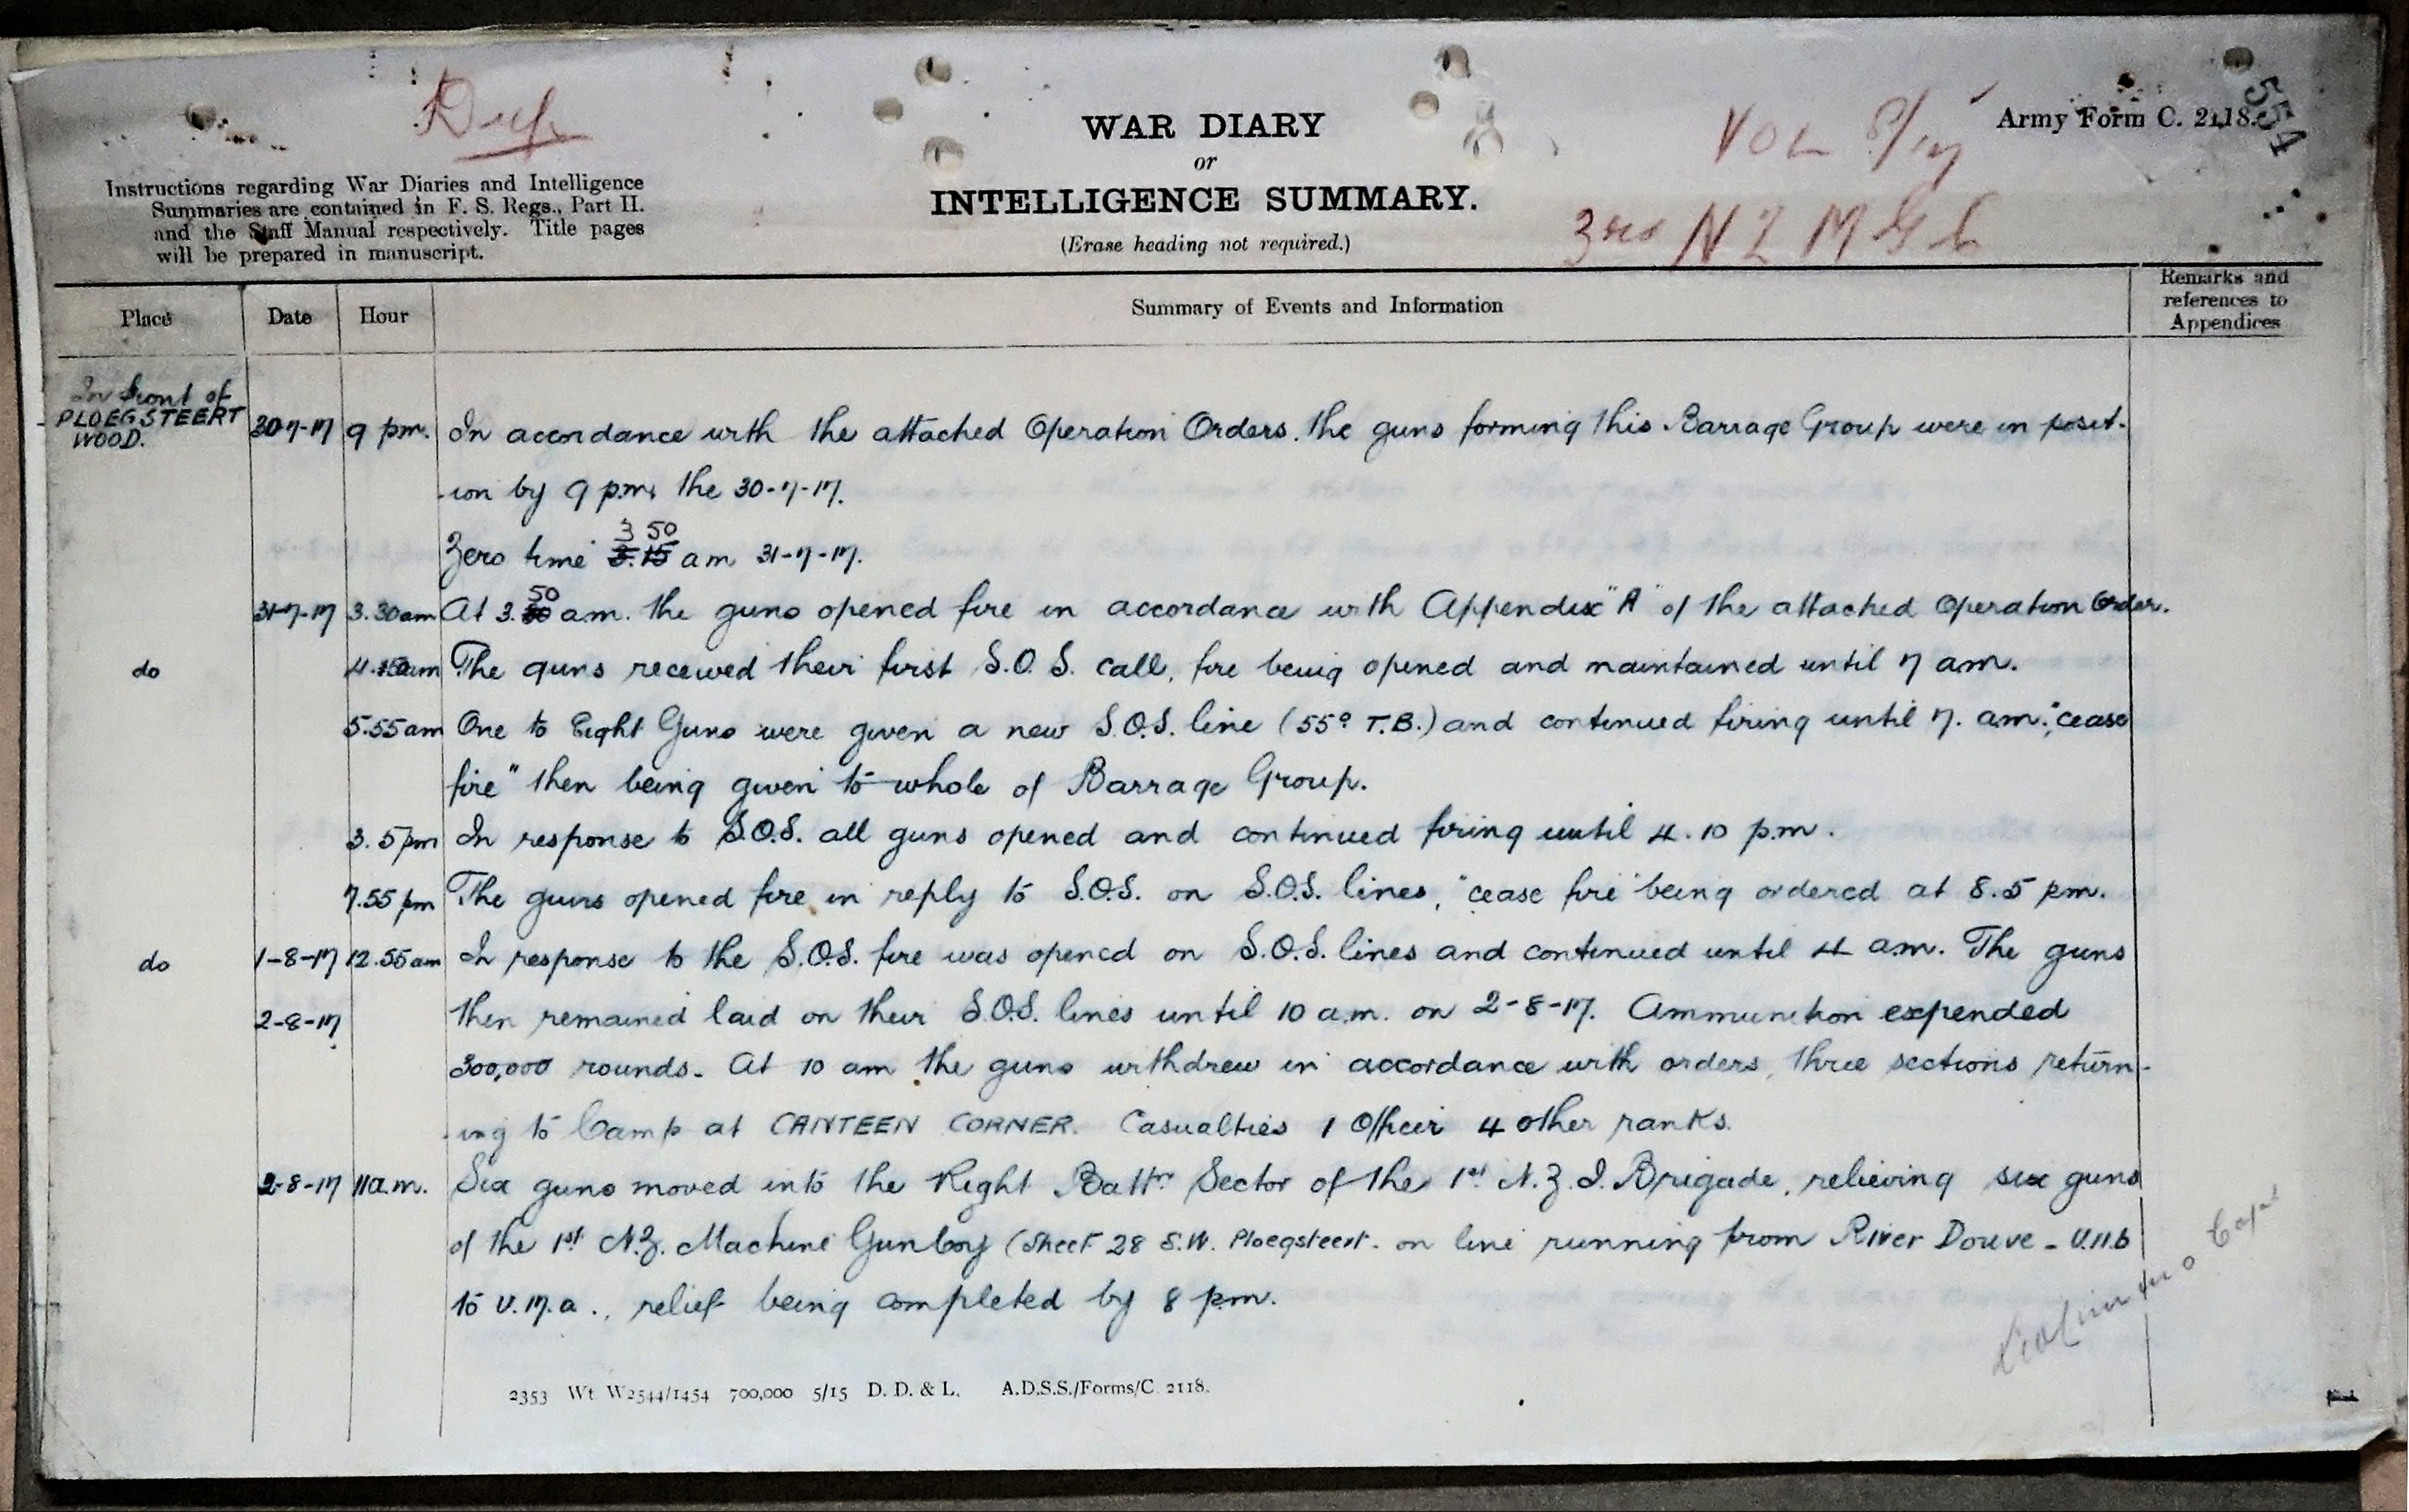 Dup
WAR DIARY
or
INTELLIGENCE SUMMARY.
(Erase heading not required.)
Army Form C. 2118.
554
VOL
3RD N Z M G C
Instructions regarding War Diaries and Intelligence
Summaries are contained in F. S. Regs., Part II.
and the Staff Manual respectively. Title pages
will be prepared in manuscript.
Place Date Hour Summary of Events and Information Remarks and
references to
Appendices
In front of
PLOEGSTEERT
WOOD.
30-7-17 9 pm. In accordance with the attached Operation Orders. the guns forming this Barrage Group were in posit-
-ion by 9 p.m. the 30-7-17.
3 50
Zero time 3.15 am 31-7-17.
50
31-7-17 3.30am At 3. am. the guns opened fire in accordance with Appendix "A" of the attached Operation Order.
do The guns received their first S.O.S. call, fire being opened and maintained until 7 am.
5.55am One to Eight Guns were given a new S.O.S. line (55° T.B.) and continued firing until 7. am. "cease
fire" then being given to whole of Barrage Group.
3.5pm In response to S.O.S. all guns opened and continued firing until 4.10 p.m.
7.55 pm The guns opened fire in reply to S.O.S. on S.O.S. lines, "cease fire" being ordered at 8.5 pm.
do 1-8-17 12.55am In response to the S.O.S. fire was opened on S.O.S. lines and continued until 4 a.m. The guns
2-8-17 then remained laid on their S.O.S. lines until 10 a.m. on 2-8-17. Ammunition expended
300,000 rounds. At 10 am the guns withdrew in accordance with orders, three sections return-
-ing to Camp at CANTEEN CORNER. Casualties 1 Officer 4 other ranks.
2-8-17 11a.m. Six guns moved into the Right Battn Sector of the 1st N.Z.I. Brigade, relieving six guns
of the 1st N.Z. Machine Gun Coy (Sheet 28 S.W. Ploegsteert. on line running from River Douve - U.11.b
to U.17.a., relief being completed by 8 p.m.
Capt
2353 Wt W2544/1454 700,000 5/15 D. D. & L. A.D.S.S./Forms/C. 2118.